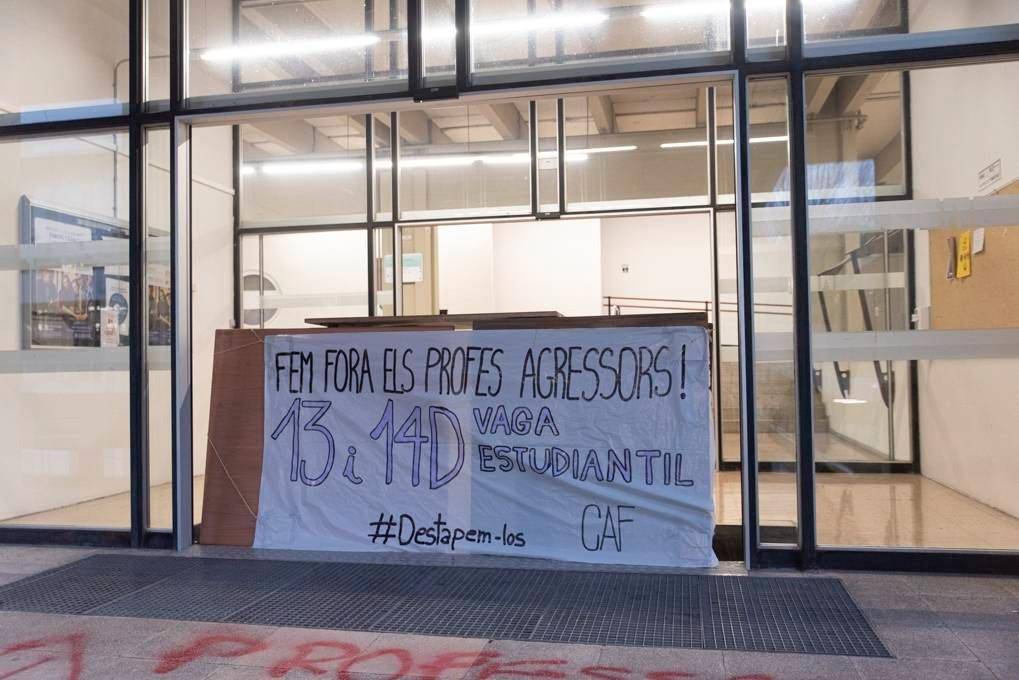 FEM FORA ELS PROFES AGRESSORS!
13 i 14D VAGA
ESTUDIANTIL
#Destapem-los CAF